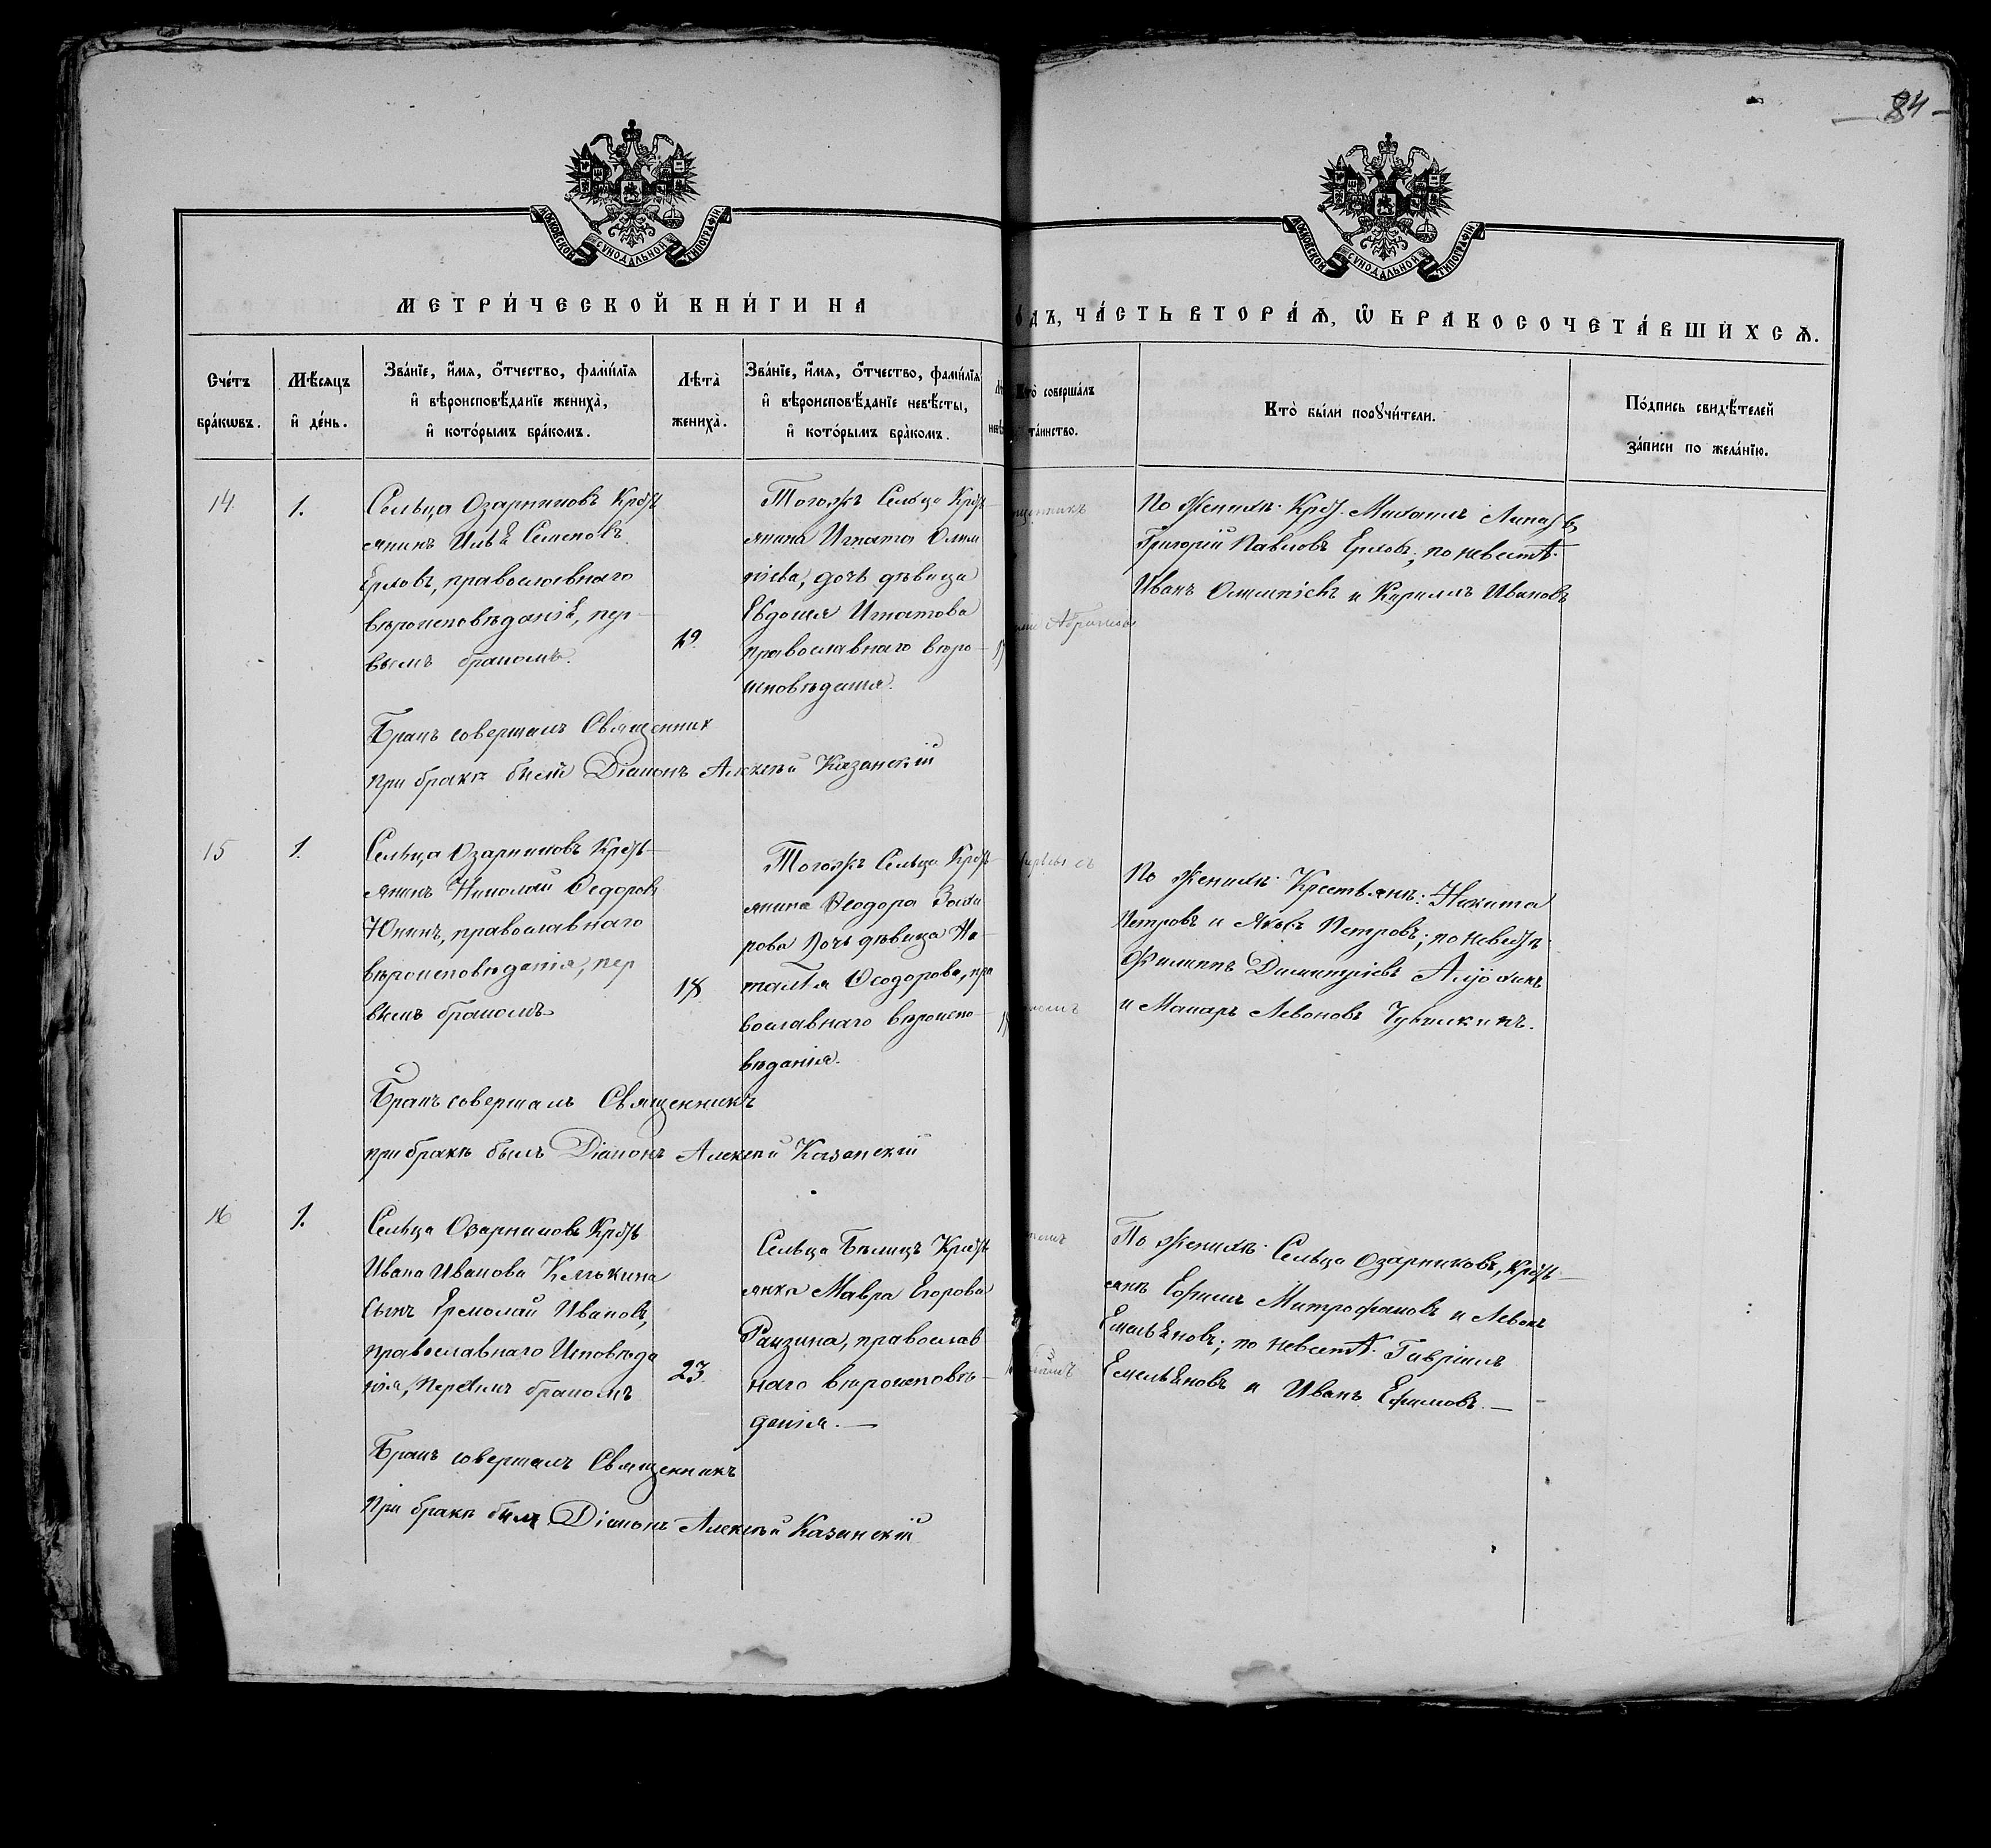 84
МОСКОВСКОЙ СУНОДАЛЬНОЙ ТИПОГРАФІИ.
МОСКОВСКОЙ СУНОДАЛЬНОЙ ТИПОГРАФІИ.
МЕТРИ́ЧЕСКОЙ КНИ́ГИ НА
ДЪ, ЧА́СТЬ ВТОРА́Ѧ, Ѿ БРАКОСОЧЕТА́ВШИХСѦ.
Сче́тъ
бра́кѡвъ.
Мѣ́сяцъ
и҆ де́нь.
Зва́нїе, и҆́мя, ѻ҆́тчество, фами́лїя
и҆ вѣроисповѣ́данїе жениха̀,
и҆ кото́рымъ бра́комъ.
Лѣта̀
жениха̀.
Зва́нїе, и҆́мя, ѻ҆́тчество, фами́лїя
и҆ вѣроисповѣ́данїе невѣ́сты,
и҆ кото́рымъ бра́комъ.
Кто̀ соверша́лъ
та́инство.
Кто̀ бы́ли порꙋчи́тели.
По́дпись свидѣ́телей
за́писи по жела́нїю.
14.
1.
Сельца Озарниковъ Кресть
янинъ Илья Семеновъ
Ерловъ, православнаго
вѣроисповѣданія, пер-
вымъ бракомъ.
19.
Тогожъ Сельца Кресть
янина Игната Олим
піева, дочь дѣвица
Евдокія Игнатова
православнаго вѣро-
исповѣданія.
По женихѣ: Крес.
Григорій Павловъ Ерловъ; по невѣстѣ:
Иванъ Олимпіевъ и Кирилъ Ивановъ
Бракъ совершалъ Священник
при бракѣ былъ Діаконъ Алексѣй Казанскій
15
1.
Сельца Озарниковъ Кресть-
янинъ Николай Ѳедоровъ
Юнинъ, православнаго
вѣроисповѣданія, пер
вымъ бракомъ
18.
Тогожъ Сельца Кресть-
янина Ѳеодора Заха
рова дочь дѣвица На-
талія Ѳеодорова, пра
вославнаго вѣроиспо-
вѣданія.
По женихѣ: Крестьянъ: Никита
Петровъ и Яковъ Петровъ; по невѣстѣ:
Филиппъ Димитріевъ
и Макаръ Левоновъ
Бракъ совершалъ Священникъ
при бракѣ былъ Діаконъ Алексѣй Казанскій
16
1.
Сельца Озарниковъ Кресть
Ивана Иванова
сынъ Ермолай Ивановъ,
православнаго Исповѣда
нія, первымъ бракомъ
23.
Сельца Бѣлицъ Кресть
янка Мавра Егорова
православ
наго вѣроисповѣ-
данія. —
По женихѣ: Сельца Озарниковъ, Кресть-
янъ Ефимъ Митрофановъ и Левонъ
Емельяновъ; по невѣстѣ: Гавріилъ
Емельяновъ и Иванъ Ефимовъ. —
Бракъ совершалъ Священникъ
При бракѣ былъ Діаконъ Алексѣй Казанскій